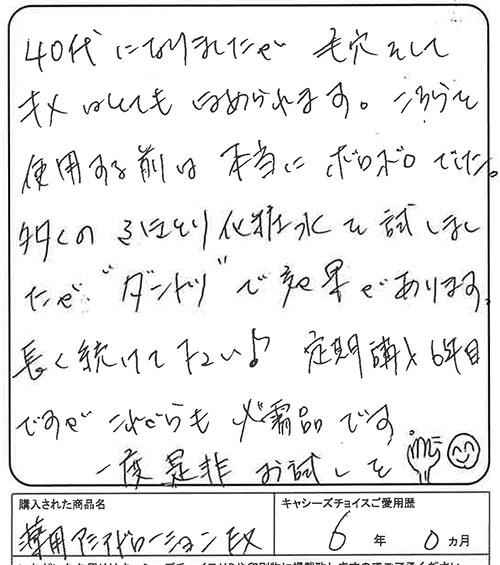 40代になりましたが 毛穴そして
キメはとてもほめられます。こちらを
使用する前は 本当に ボロボロでした。
多くの うほとり化粧水を試しまし
たが "ダントツ"で効果があります。
長く続けて下さい♪ 定期購入6年目
ですが これからも 必需品です
一度是非 お試しを
購入された商品名
キャシーズチョイスご愛用歴
薬用アシアドローションEX
6年0ヵ月